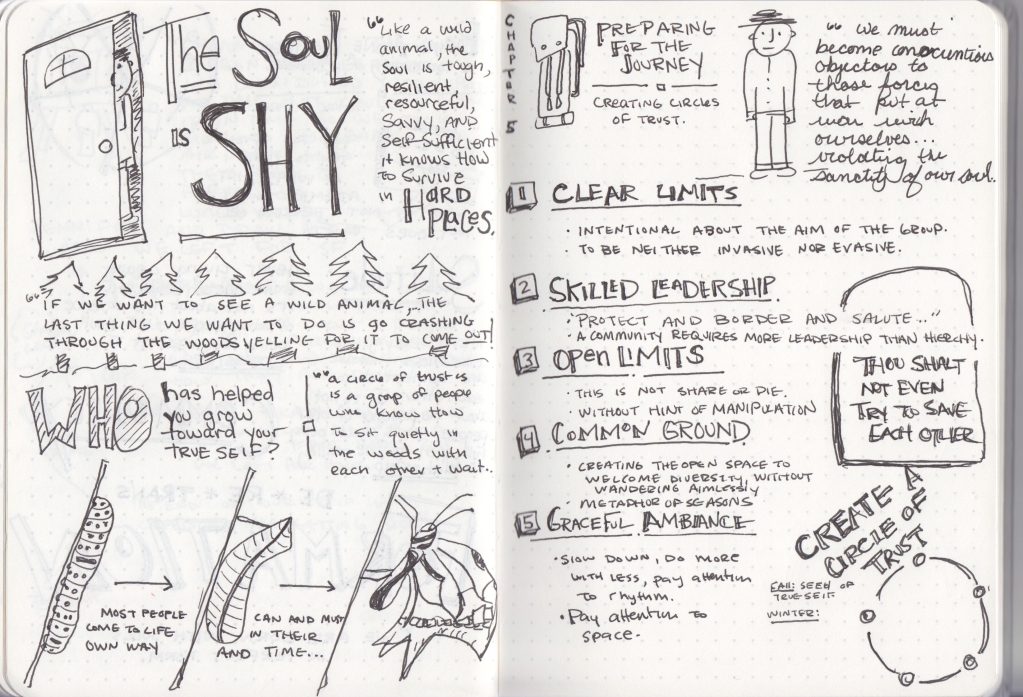 The SOUL
IS SHY
"Like a wild
animal the
Soul is tough,
resilient,
resourceful,
Savvy, AND
Self-Sufficient
it knows How
to Survive
in HARD
PLACES.
"IF WE WANT TO SEE A WILD ANIMAL,... THE
LAST THING WE WANT TO DO IS GO CRASHING
THROUGH THE WOODS YELLING FOR IT TO COME OUT!
WHO has helped
you grow
toward your
TRUE SELF?
"a circle of trust is
is a group of people
who know How
To sit quietly in
the woods with
each other + wait..
MOST PEOPLE
COME TO LIFE
OWN WAY
CAN AND MUST
IN THEIR
AND TIME...
CHAPTER 5
PREPARING
FOR THE
JOURNEY
CREATING CIRCLES
OF TRUST.
"We must
become conscientious
objectors to
those forces
that put at
war with
ourselves...
violating the
sanctity of our soul.
1 CLEAR LIMITS
· INTENTIONAL ABOUT THE AIM OF THE GROUP.
· TO BE NEITHER INVASIVE NOR EVASIVE.
2 SKILLED LEADERSHIP
· "PROTECT AND BORDER AND SALUTE..."
· A COMMUNITY REQUIRES MORE LEADERSHIP THAN HIERCHY.
3 OPEN LIMITS
· THIS IS NOT SHARE OR DIE.
· WITHOUT HINT OF MANIPULATION
4 COMMON GROUND
· CREATING THE OPEN SPACE TO
WELCOME DIVERSITY, WITHOUT
WANDERING AIMLESSLY
· METAPHOR OF SEASONS
5 GRACEFUL AMBIANCE
· SLOW DOWN, DO MORE
WITH LESS, pay attention
TO rhythm.
· Pay attention TO
space.
THOU SHALT
NOT EVEN
TRY TO SAVE
EACH OTHER
CREATE A
CIRCLE OF
TRUST
FALL: SEED OF
TRUE SELF
WINTER: